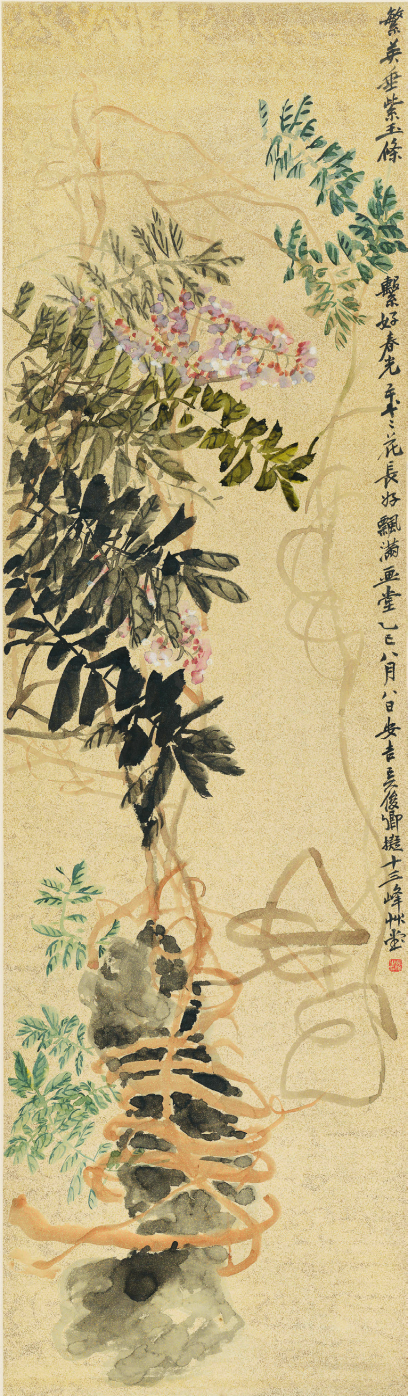 繁英垂紫玉條繫好春光歲〻花長好飄滿画堂乙巳八月八日安吉吳俊卿擬十三峰艸堂